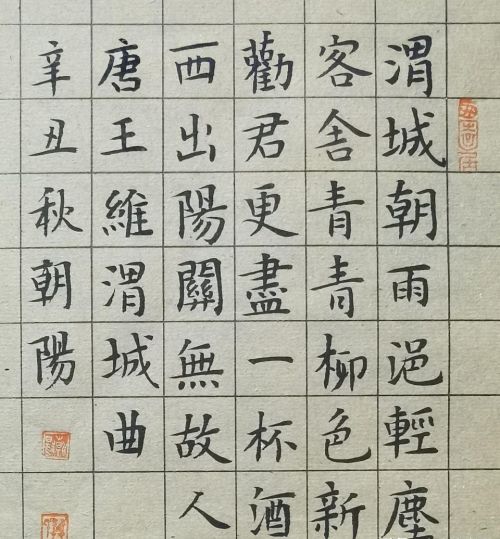 渭城朝雨浥輕塵
客舍青青柳色新
勸君更盡一杯酒
西出陽關無故人
唐王維渭城曲
辛丑秋朝陽